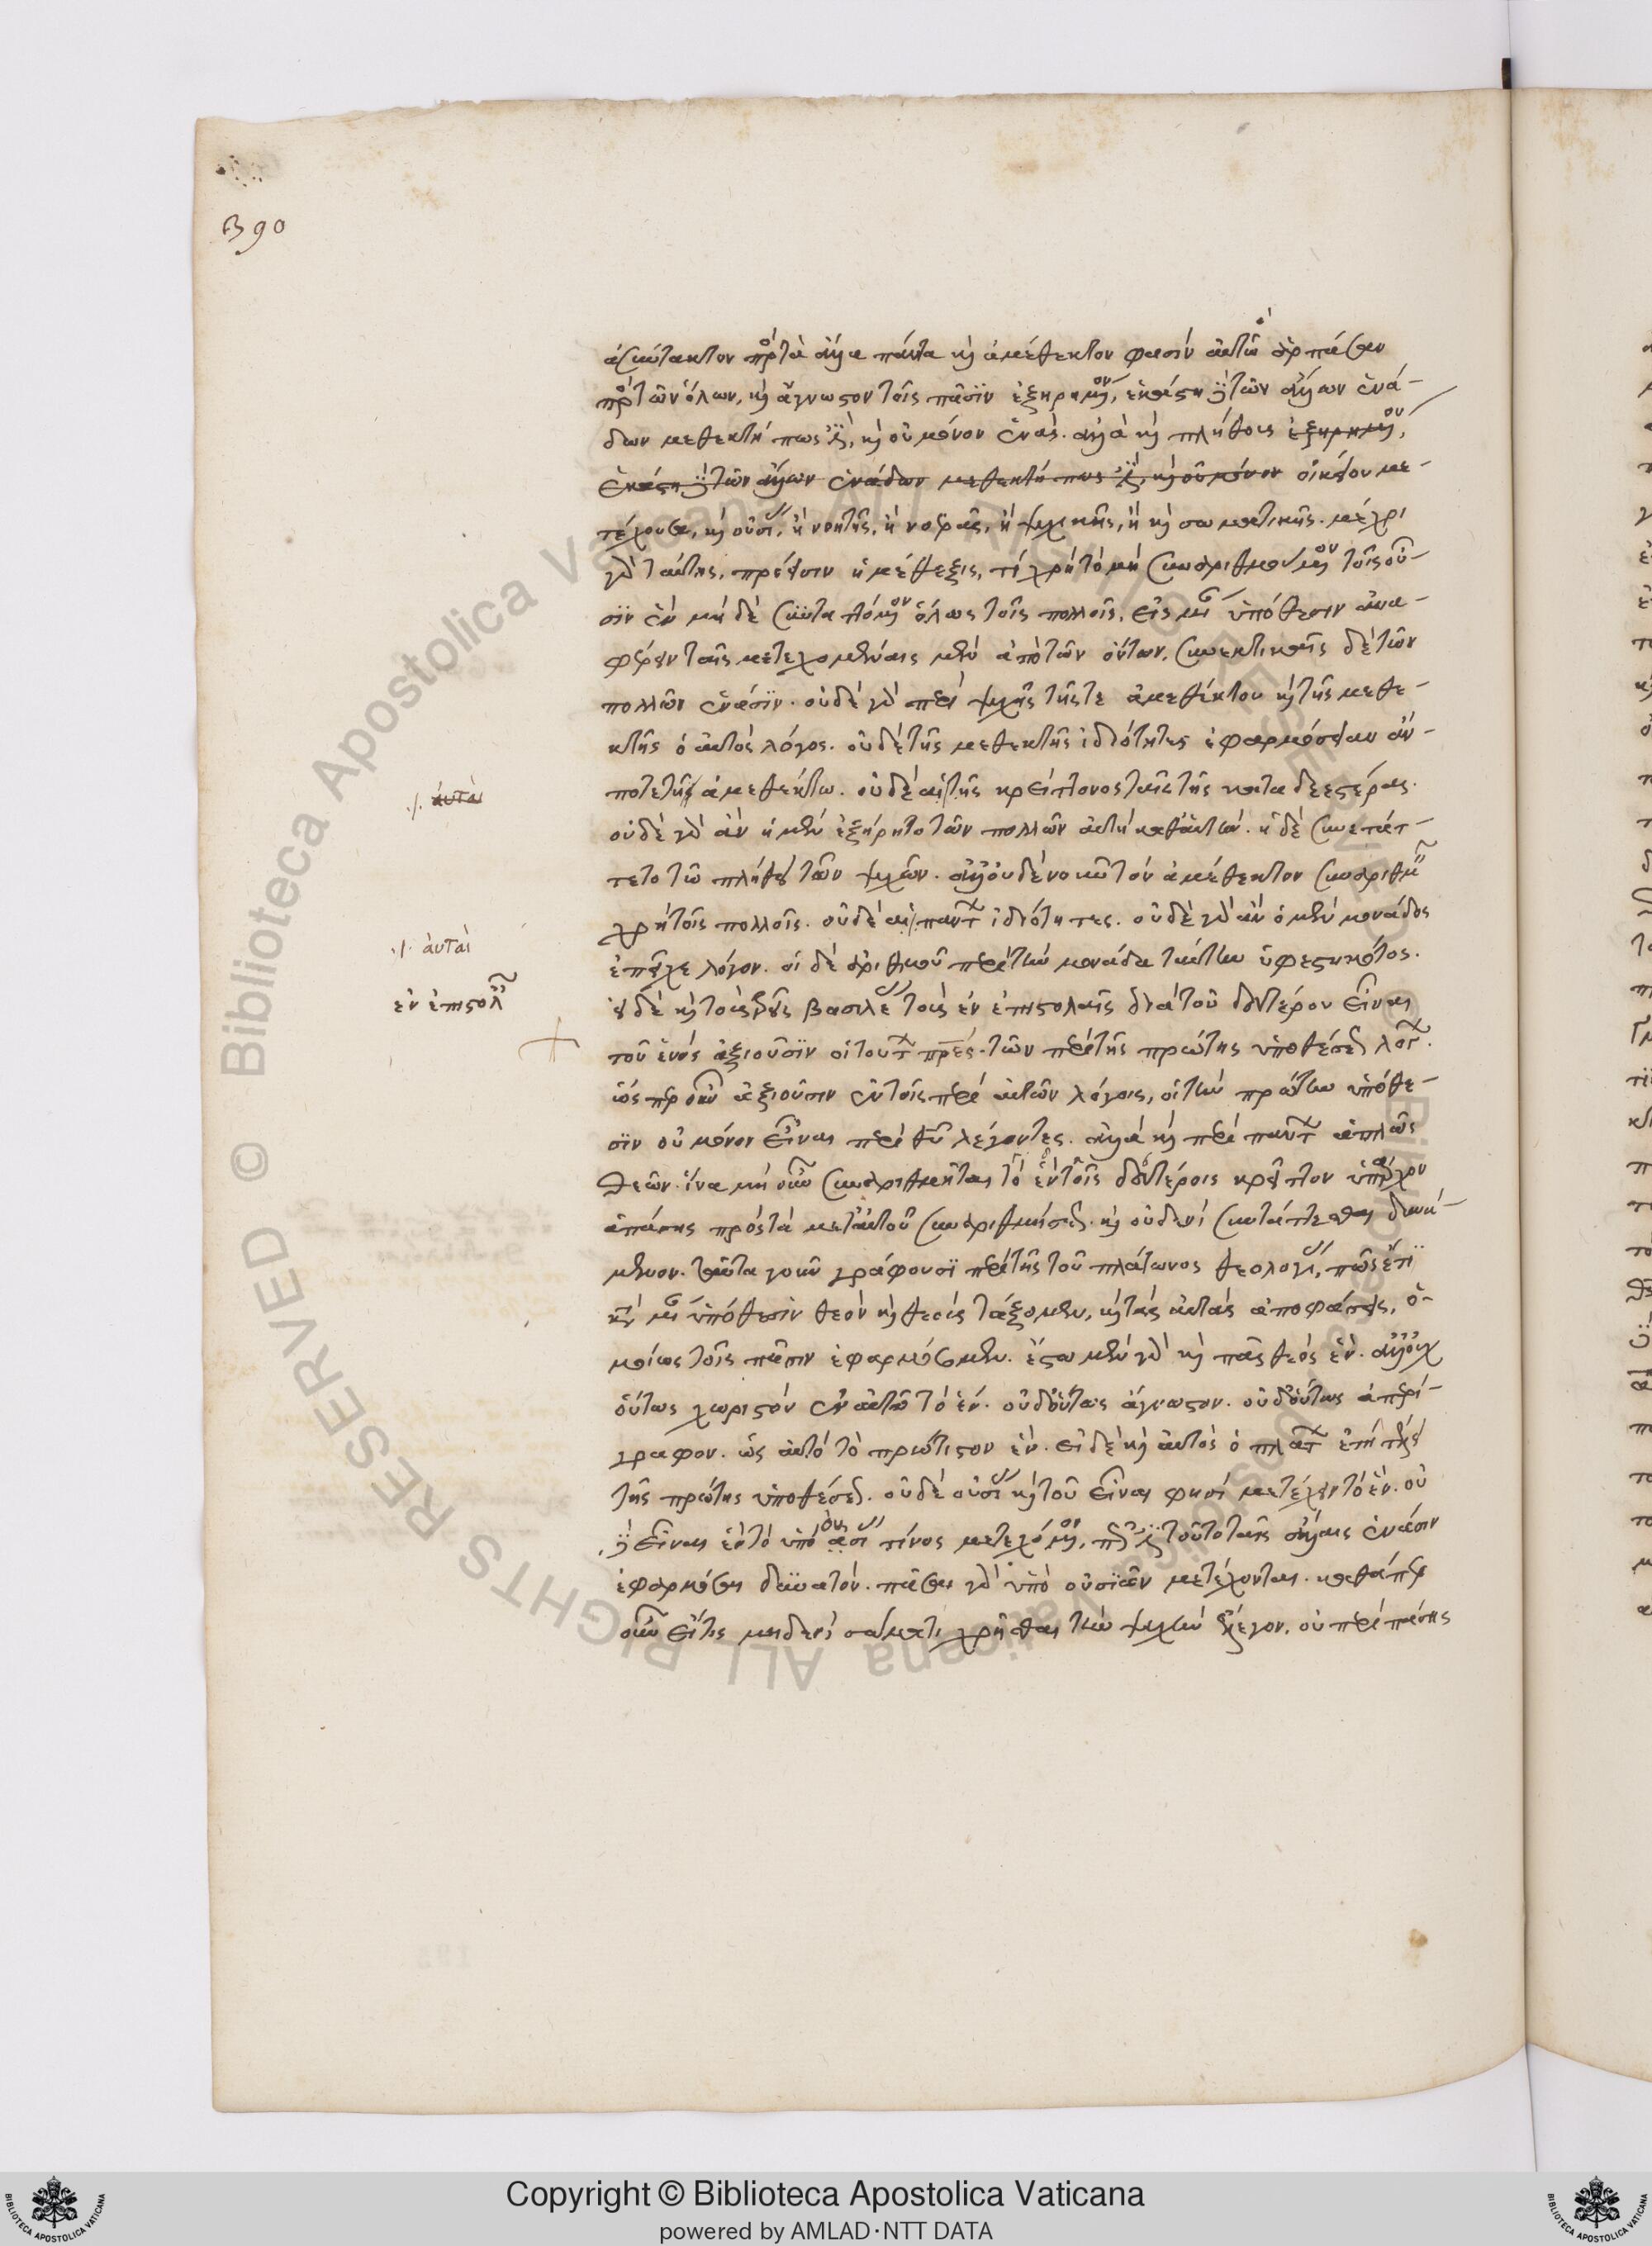 B 90
ἀσύντακτον πρὸς τὰ ἄλλα πάντα καὶ ἀμέθεκτον φασὶν αὐτὸ ἁρπάσαν
πρὸς τῶν ὅλων, καὶ ἄγνωστον τοῖς πᾶσιν ἐξηρημένον, ἑκάστη δὲ τῶν ἄλλων ἑνά-
δων μεθεκτή πως ἐστι, καὶ οὐ μόνον ἑνὰς. ἀλλὰ καὶ πλήθους ἐξηρημένον,
ἑκάστη δὲ τῶν ἄλλων ἑνάδων μεθεκτή πως ἐστι, καὶ οὐ μόνον οἰκείου με-
τέχουσα, καὶ οὐσίας, ἢ νοητῆς, ἢ νοερᾶς, ἢ ψυχικῆς, ἢ καὶ σωματικῆς. μέχρι
γὰρ ταύτης, πρόεισιν ἡ μέθεξις, τί χρὴ τὸ μὴ συναριθμούμενον τοῖς οὖ-
σιν ἓν μηδὲ συνταττόμενον ὅλως τοῖς πολλοῖς, εἰς μίαν ὑπόθεσιν ἀνα-
φέρειν ταῖς μετεχομέναις μὲν ἀπὸ τῶν ὄντων, συνεκτικαῖς δὲ τῶν
πολλῶν ἑνάσιν. οὐδὲ γὰρ περὶ ψυχῆς τῆς τε ἀμεθέκτου καὶ τῆς μεθε-
κτῆς ὁ αὐτὸς λόγος. οὐδὲ τῆς μεθεκτῆς ἰδιότητες ἐφαρμόσειαν ἄν
ποτε τῇ ἀμεθέκτω. οὐδὲ αἱ τῆς κρείττονος ταῖς τῆς καταδεεστέρας.
οὐδὲ γὰρ ἂν ἡ μὲν ἐξῄρητο τῶν πολλῶν αὐτὴ καθ' αὑτήν. ἡ δὲ συνετάτ-
τετο τῶ πλήθει τῶν ψυχῶν. ἀλλ' οὐδὲ νοῦν τὸν ἀμέθεκτον συναριθμεῖν
χρὴ τοῖς πολλοῖς. οὐδὲ αἱ πάντων ἰδιότητες. οὐδὲ γὰρ ἂν ὁ μὲν μονάδος
ἐπεῖχε λόγον. οἱ δὲ ἀριθμοῦ περὶ τὴν μονάδα ταύτην ὑφεστηκότος.
εἰ δὲ καὶ τοὺς τρεῖς βασιλέας τοὺς ἐν ἐπιστολαῖς διὰ τοῦ δευτέρου εἶναι
τοῦ ἑνός ἀξιοῦσιν οἱ τούτων πατέρες τῶν περὶ τῆς πρώτης ὑποθέσεως λόγων.
ὥσπερ οὖν ἀξιοῦσιν ἐν τοῖς περὶ αὐτῶν λόγοις, οἱ τὴν πρώτην ὑπόθε-
σιν οὐ μόνον εἶναι περὶ θεοῦ λέγοντες. ἀλλὰ καὶ περὶ πάντων ἁπλῶς
θεῶν. ἵνα μὴ οὖν συναριθμῆται τὸ ἓν τοῖς δευτέροις κρεῖττον ὑπάρχον
ἁπάσης πρὸς τὰ μετ' αὐτοῦ συναριθμήσεως. καὶ οὐδενὶ συντάττεσθαι δυνά-
μενον. ταῦτα γοῦν γράφουσι περὶ τῆς τοῦ πλάτωνος θεολογίας, πῶς ἔτι
κατὰ μίαν ὑπόθεσιν θεὸν καὶ θεοὺς τάξομεν, καὶ τὰς αὐτὰς ἀποφάσεις, ὁ-
μοίως τοῖς πᾶσιν ἐφαρμόσομεν. ἔστω μὲν γὰρ καὶ πᾶς θεὸς ἕν. ἀλλ' οὐχ
οὕτως χωριστὸν ἐν αὐτῶ τὸ ἕν. οὐδ' οὕτως ἄγνωστον. οὐδ' οὕτως ἀπερί-
γραφον. ὡς αὐτὸ τὸ πρώτιστον ἕν. εἰ δὲ καὶ αὐτὸς ὁ πλάτων ἐπὶ τέλει
τῆς πρώτης ὑποθέσεως. οὐδὲ οὐσίας καὶ τοῦ εἶναι φησὶ μετέχειν τὸ ἕν. οὐ
δὲ εἶναι ἓν τὸ ὑπὸ οὐσίας τινὸς μετεχόμενον, πῶς ἐστι τοῦτο ταῖς ἄλλαις ἑνάσιν
ἐφαρμόσαι δυνατόν. πᾶσαι γὰρ ὑπὸ οὐσιῶν μετέχονται. καθάπερ
οὖν εἴ τις μηδενὶ σώματι χρῆσθαι τὴν ψυχὴν ἔλεγον, οὐ περὶ πάσης
./. αὐταὶ
./. αὐταὶ
ἐν ἐπιστολαῖς
Copyright © Biblioteca Apostolica Vaticana
powered by AMLAD·NTT DATA